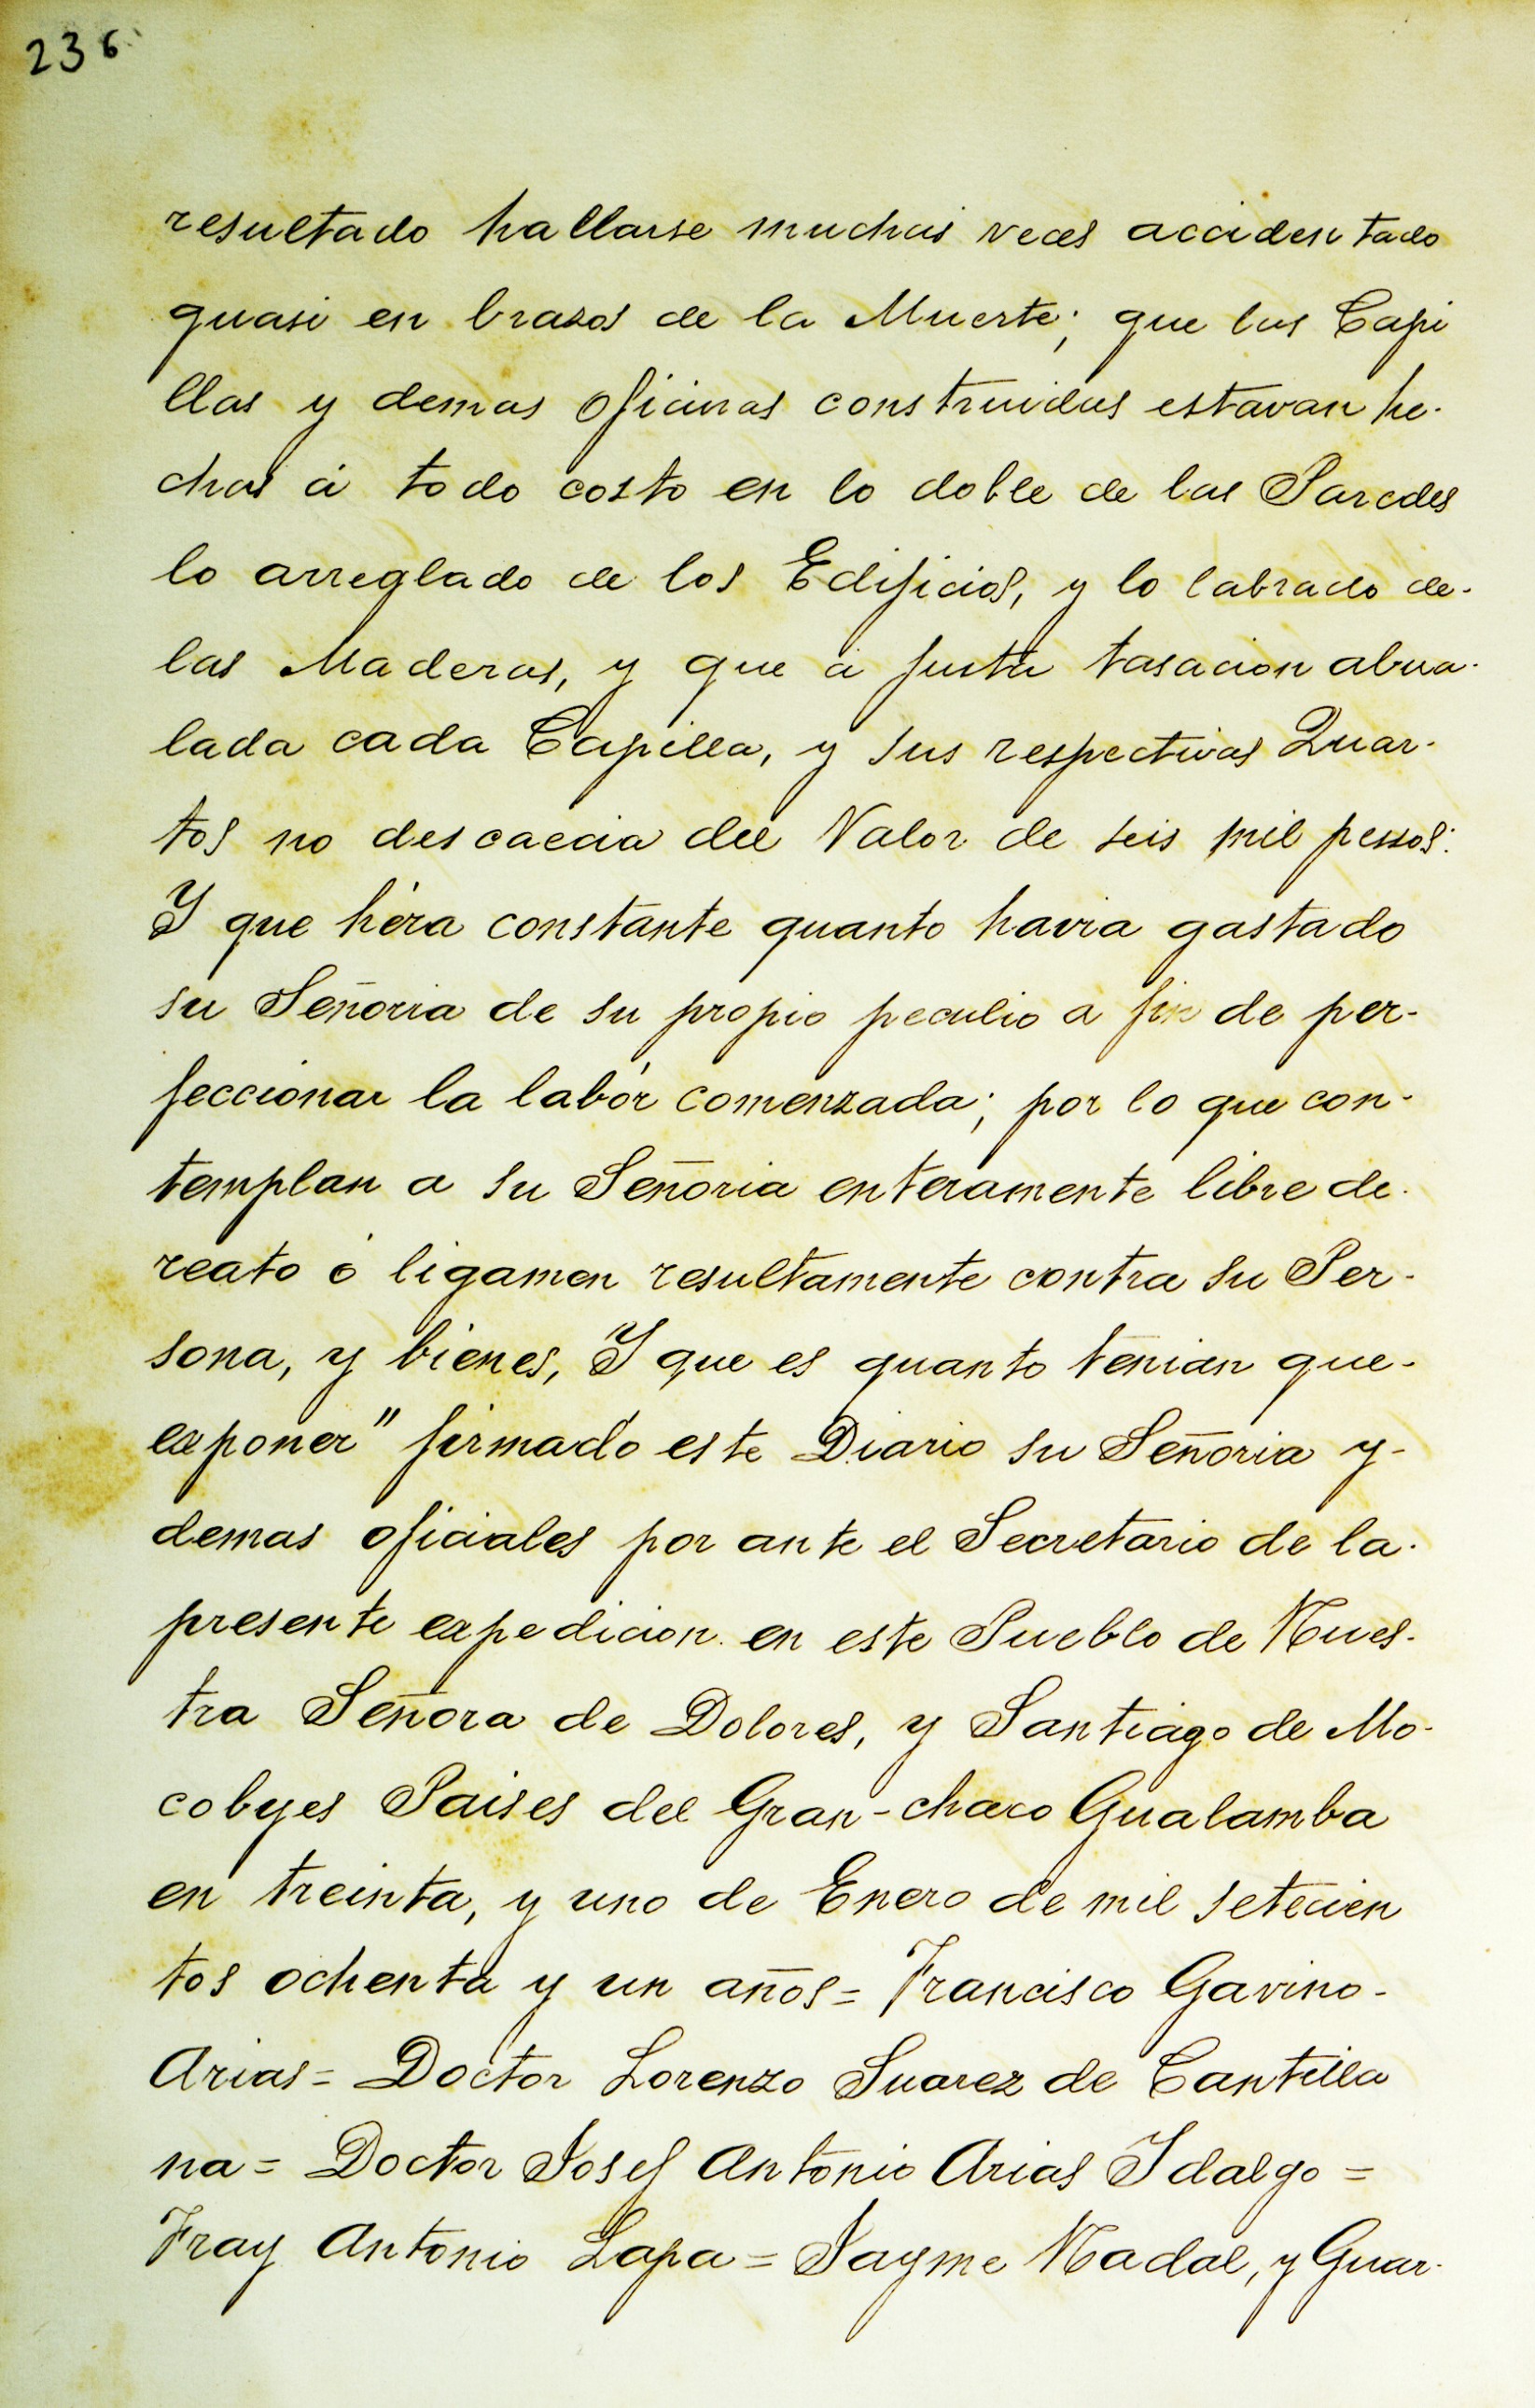 236
resultado hallarse muchas veces accidentado
quasi en brasos de la Muerte; que las Capi
llas y demas oficinas construidas estavan he-
chas á todo costo en lo doble de las Paredes
lo arreglado de los Edificios, y lo labrado de-
las Maderas, y que á justa tasacion abua-
lada cada Capilla, y sus respectivas Quar-
tos no descaecia del Valor de seis mil pessos:
Y que héra constante quanto havia gastado
su Señoria de su propio peculio a fin de per-
feccionar la labór comenzada; por lo que con-
templan a su Señoria enteramente libre de-
reato ó ligamen resultamente contra su Per-
sona, y bienes, Y que es quanto tenian que-
exponer" firmado este Diario su Señoria y-
demas oficiales por ante el Secretario de la-
presente expedicion en este Pueblo de Nues-
tra Señora de Dolores, y Santiago de Mo-
cobyes Paises del Gran-chaco Gualamba
en treinta, y uno de Enero de mil setecien
tos ochenta y un años= Francisco Gavino-
Arias= Doctor Lorenzo Suarez de Cantilla
na= Doctor Josef Antonio Arias Idalgo=
Fray Antonio Lapa= Jayme Nadal, y Guar-